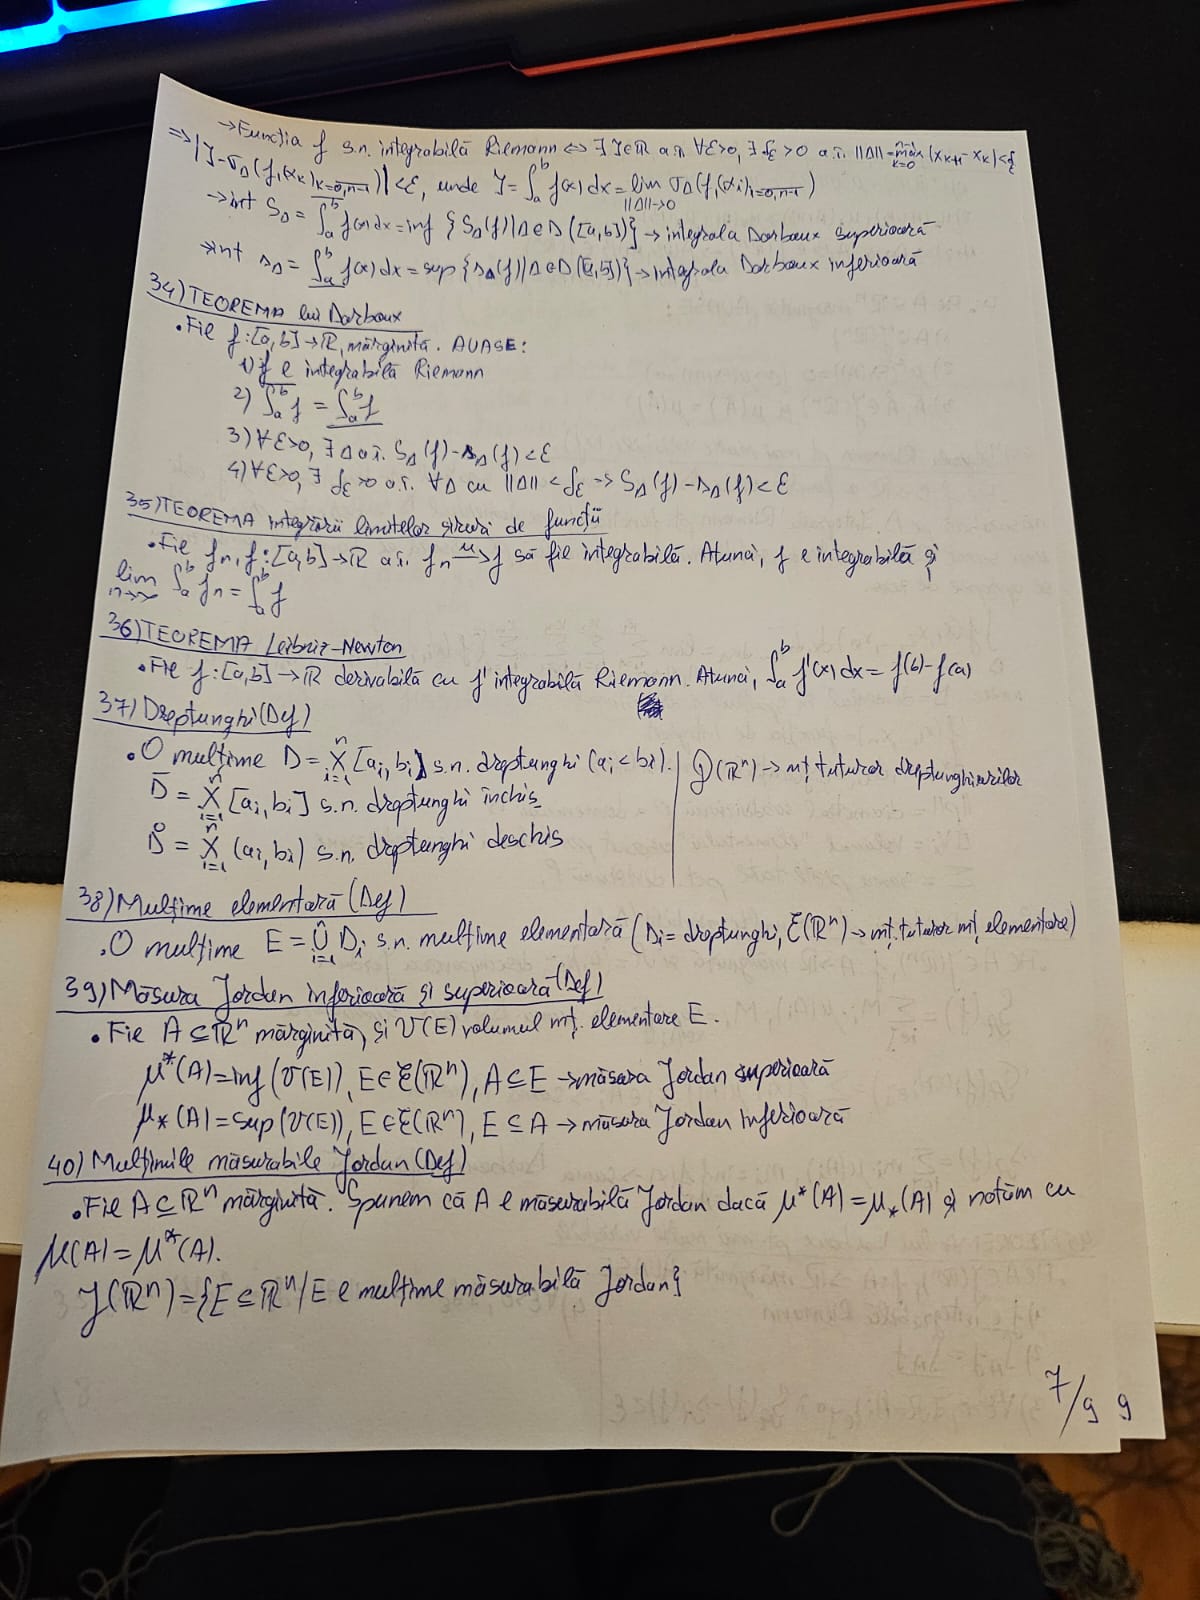 →Funcția f s.n. integrabilă Riemann ⇔ ∃ J∈ℝ a.î. ∀ε>0, ∃ δ_ε>0 a.î. ||Δ||=max_{k=0}^{n-1}(x_{k+1}-x_k)<δ_ε
⇒|J-σ_Δ(f,(α_k)_{k=0,n-1})|<ε, unde J=∫_a^b f(x)dx=lim_{||Δ||→0} σ_Δ(f,(α_i)_{i=0,n-1})
→int S_Δ=∫_a^b f(x)dx=inf{S_Δ(f)|Δ∈D([a,b])}→integrala Darboux superioară
→int s_Δ=∫_a^b f(x)dx=sup{s_Δ(f)|Δ∈D([a,b])}→integrala Darboux inferioară
34)TEOREMA lui Darboux
•Fie f:[a,b]→ℝ, mărginită. AUASE:
1)f e integrabilă Riemann
2)∫_a^b f=∫_a^b f
3)∀ε>0, ∃Δ a.î. S_Δ(f)-s_Δ(f)<ε
4)∀ε>0, ∃ δ_ε>0 a.î. ∀Δ cu ||Δ||<δ_ε ⇒S_Δ(f)-s_Δ(f)<ε
35)TEOREMA integrării limitelor șiruri de funcții
•Fie f_n, f:[a,b]→ℝ a.î. f_n -u-> f să fie integrabilă. Atunci, f e integrabilă și
lim_{n→∞} ∫_a^b f_n=∫_a^b f
36)TEOREMA Leibniz-Newton
•Fie f:[a,b]→ℝ derivabilă cu f' integrabilă Riemann. Atunci, ∫_a^b f'(x)dx=f(b)-f(a)
37)Dreptunghi(Def)
•O mulțime D=X_{i=1}^n [a_i,b_i) s.n. dreptunghi (a_i<b_i). | D(ℝⁿ)→mț tuturor dreptunghiurilor
D̄=X_{i=1}^n [a_i,b_i] s.n. dreptunghi închis
D̊=X_{i=1}^n (a_i,b_i) s.n. dreptunghi deschis
38)Mulțime elementară(Def)
•O mulțime E=∪_{i=1}^n D_i s.n. mulțime elementară (D_i=dreptunghi, ℰ(ℝⁿ)→mț. tuturor mț elementare)
39)Măsura Jordan inferioară și superioară(Def)
•Fie A⊆ℝⁿ mărginită, și V(E) volumul mț. elementare E.
μ*(A)=inf(V(E)), E∈ℰ(ℝⁿ), A⊆E →măsura Jordan superioară
μ_*(A)=sup(V(E)), E∈ℰ(ℝⁿ), E⊆A →măsura Jordan inferioară
40)Mulțimile măsurabile Jordan(Def)
•Fie A⊆ℝⁿ mărginită. Spunem că A e măsurabilă Jordan dacă μ*(A)=μ_*(A) și notăm cu
μ(A)=μ*(A).
J(ℝⁿ)={E⊆ℝⁿ/E e mulțime măsurabilă Jordan}
7/9 9